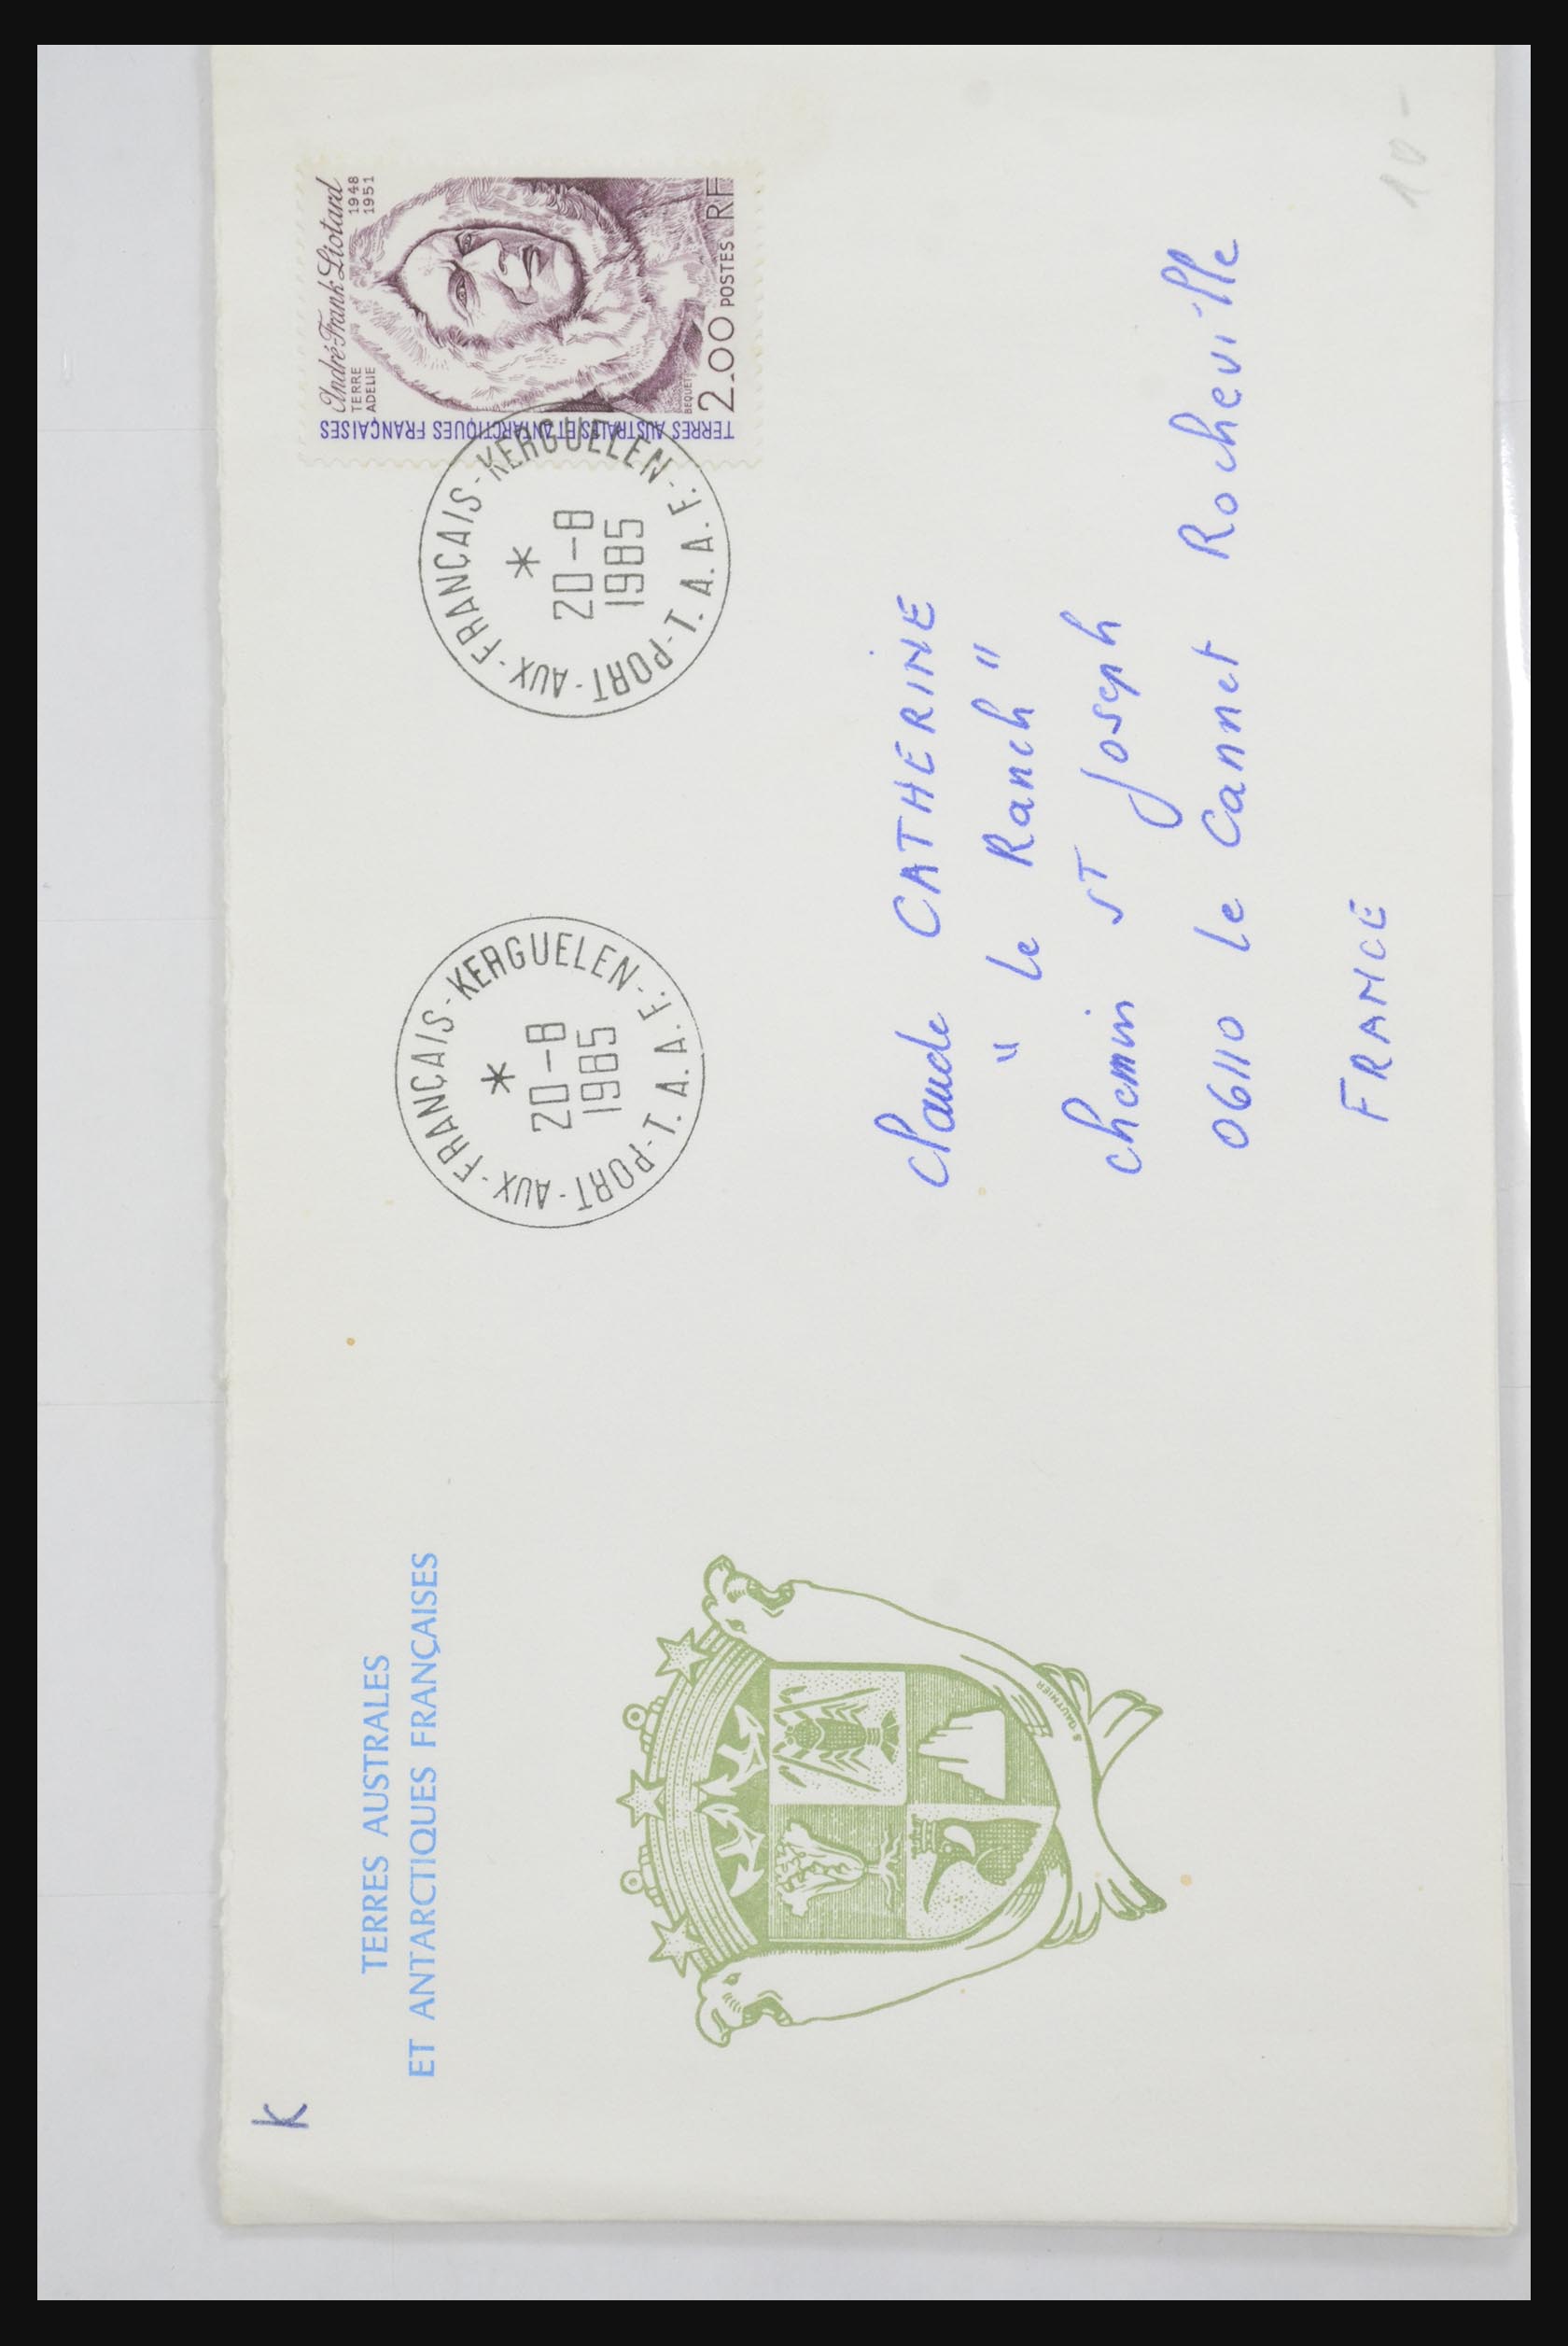 K
TERRES AUSTRALES
ET ANTARCTIQUES FRANÇAISES
B. GAUTHIER
PORT-AUX-FRANÇAIS-KERGUELEN-
*
20-8
1985
T.A.A.F.
PORT-AUX-FRANÇAIS-KERGUELEN-
*
20-8
1985
T.A.A.F.
TERRES AUSTRALES ET ANTARCTIQUES FRANÇAISES
André-Frank Liotard
TERRE
ADELIE
1948
1951
BEQUET
2.00 POSTES RF
Claude CATHERINE
" Le Ranch "
Chemin ST Joseph
06110 Le Cannet Rocheville
FRANCE
10-